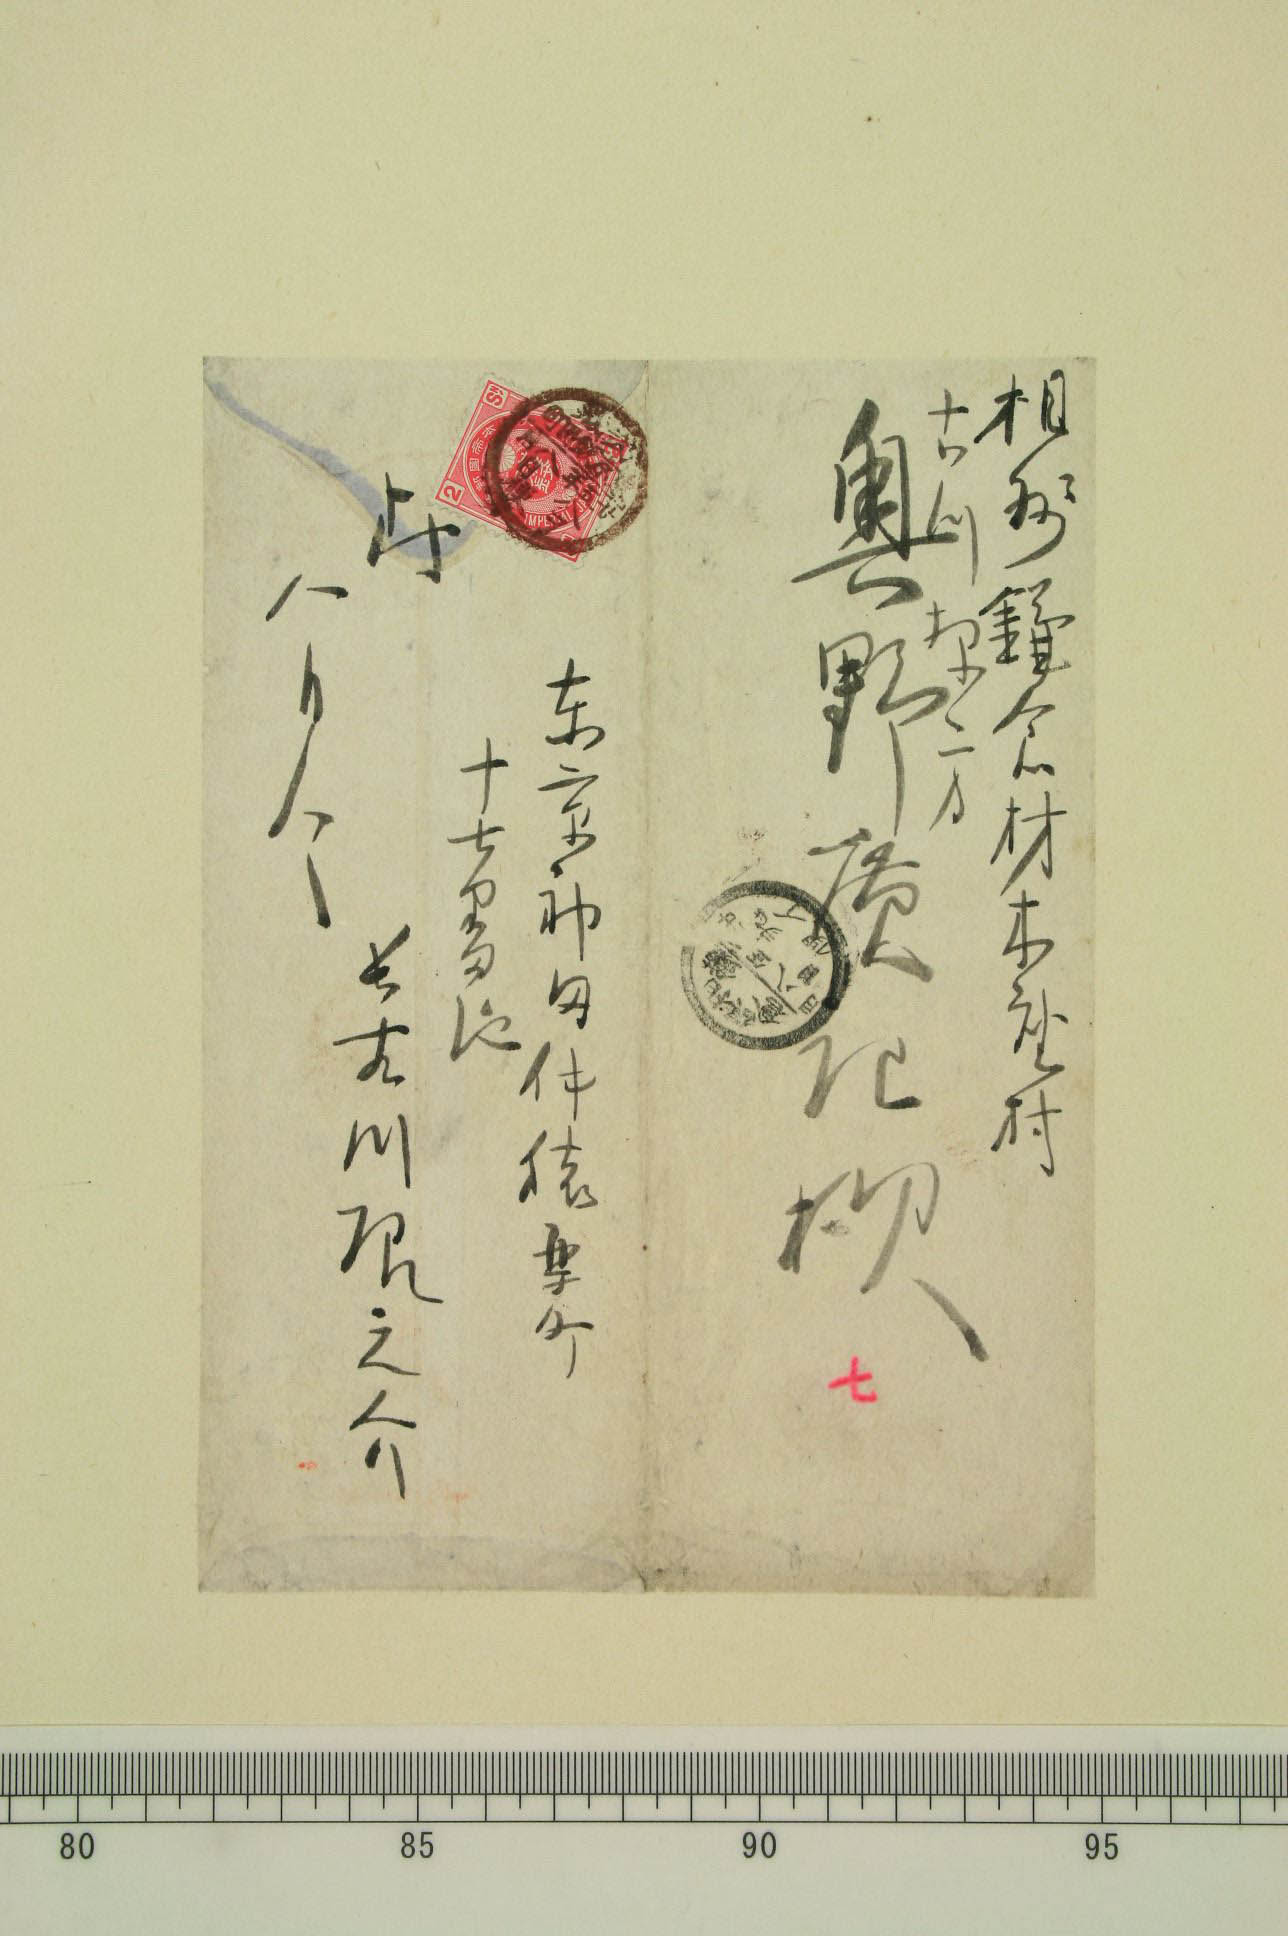 相州鎌倉材木座村
古川 方
奥野廣記様
七
東京神田仲猿楽町
十七番地
長谷川 之介
八月八日
2 SN
IMPERIAL J
80 85 90 95